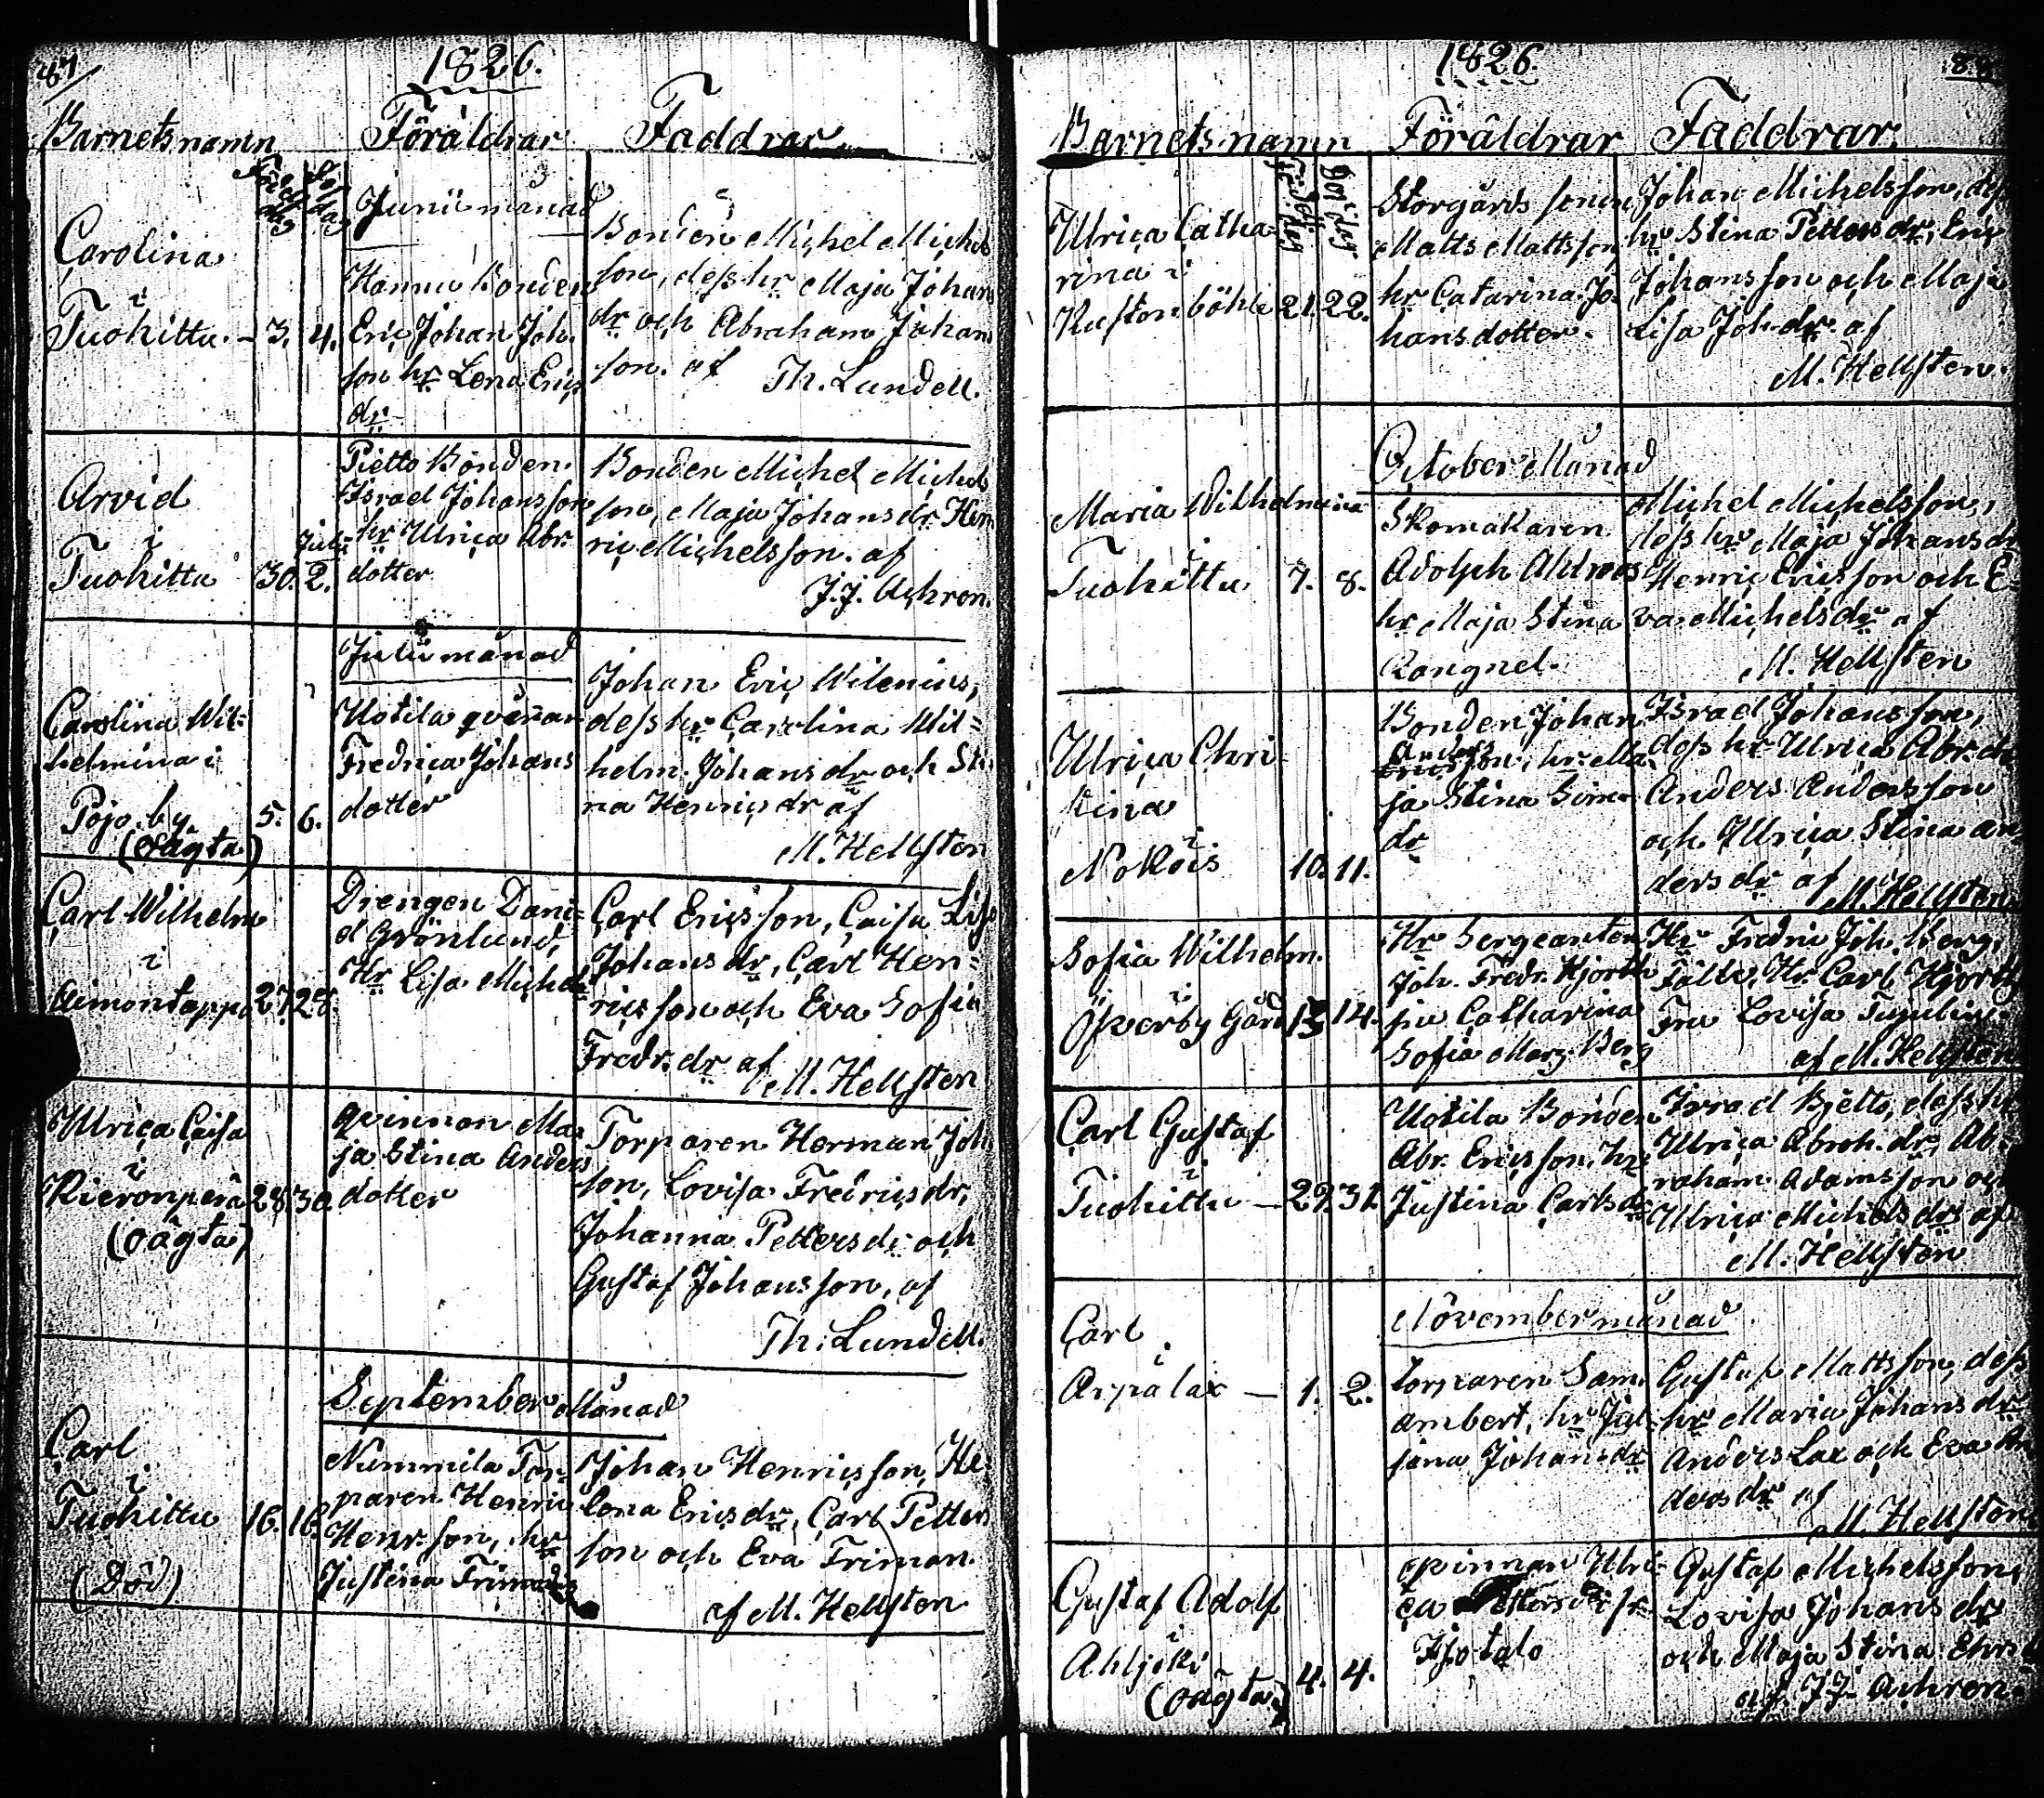 87
1826.
Barnets namn Föräldrar Faddrar
Född dag Döp. dag
Junii månad
Carolina
i
Tuohittu - 3. 4.
Hannu Bonden
Eric Johan Joh.
son hr Lena Erics
dr
Bonden Michel Michels
son, dess hr Maja Johans
dr och Abraham Johans
son. af
Th. Lundell.
Arvid
i
Tuohittu 30. Julii 2.
Pietto Bonden
Israel Johansson
hr Ulrica Abr.
dotter
Bonden Michel Michels
son, Maja Johansdr. Hen
ric Michelsson. af
J. J. Achren.
Julii månad
Carolina Wil=
helmina i
Pojo by
(oägta) 5. 6.
Uotila qvinnan
Fredrica Johans
dotter
Johan Eric Wilenius,
dess hr Carolina Wil=
helm. Johansdr och Sti
na Henricsdr af
M. Hellsten
Carl Wilhelm
i
Aimontappa 27. 28.
Drengen Dani=
el Grönlund,
Hr Lisa Michelsdr
Carl Ericsson, Caisa Lisa
Johansdr, Carl Hen=
ricsson och Eva Sofia
Fredr. dr af
M. Hellsten
Ulrica Caisa
i
Kieronperä 28. 30.
(oägta)
qvinnan Ma=
ja Stina Anders
dotter
Torparen Herman Joh
son, Lovisa Fredricsdr,
Johanna Pettersdr och
Gustaf Johansson, af
Th. Lundell.
September Månad
Carl
i
Tuohittu 16. 16.
(Död)
Nummila Tor=
paren Henric
Henr. son, hr
Justina Friman
Johan Henricsson, He=
lena Ericsdr, Carl Petters
son och Eva Friman.
af M. Hellsten
1826.
88
Barnets namn Föräldrar Faddrar.
Född dag Döp. dag
Ulrica Catha
rina i
Kustonböhle 21. 22.
Storgårds sonen
Matts Mattsson
hr Catarina Jo=
hansdotter.
Johan Michelsson, dess
hr Stina Pettersdr, Eric
Johansson och Maja
Lisa Joh. dr af
M. Hellsten.
October Månad
Maria Wilhelmina
i
Tuohittu 7. 8.
Skomakaren
Adolph Ahlroos
hr Maja Stina
Rangnel.
Michel Michelsson,
dess hr Maja Johansdr
Henric Ericsson och E=
va Michelsdr af
M. Hellsten
Ulrica Chri
stina
i
Nokois 10. 11.
Bonden Johan
Anders
Ericsson, hr Ma=
ja Stina Sim.
dr
Israel Johansson,
dess hr Ulrica Abr. dr
Anders Andersson
och Ulrica Stina An
dersdr af
M. Hellsten
Sofia Wilhelm.
i
Åkerby Gård 13 14.
Hr Sergeanten
Joh. Fredr. Hjorth
fru Catharina
Sofia Marg. Berg
Hr Fredric Joh. Berg,
Fält. Hr. Carl Hjorth
Fru Lovisa
af M. Hellsten
Carl Gustaf
i
Tuohittu - 29. 31.
Uotila Bonden
Abr. Ericsson, hr
Justina Carlsdr
Israel Pjetto, dess hr
Ulrica Abrah. dr, Ab=
raham Adamsson och
Ulrica Michelsdr af
M. Hellsten
November månad
Carl
i
Arpalax - 1. 2.
torparen Sam.
Lambert, hr Jul
jana Johansdr
Gustaf Mattsson, dess
hr Maria Johansdr
Anders Lax och Eva An
dersdr af
M. Hellsten
Gustaf Adolf
i
Ahljoki
(oägta) 4. 4.
qvinnan Ulri=
ca Pettersdr fr.
Isotalo
Gustaf Michelsson,
Lovisa Johansdr
och Maja Stina
af J. J. Achren.